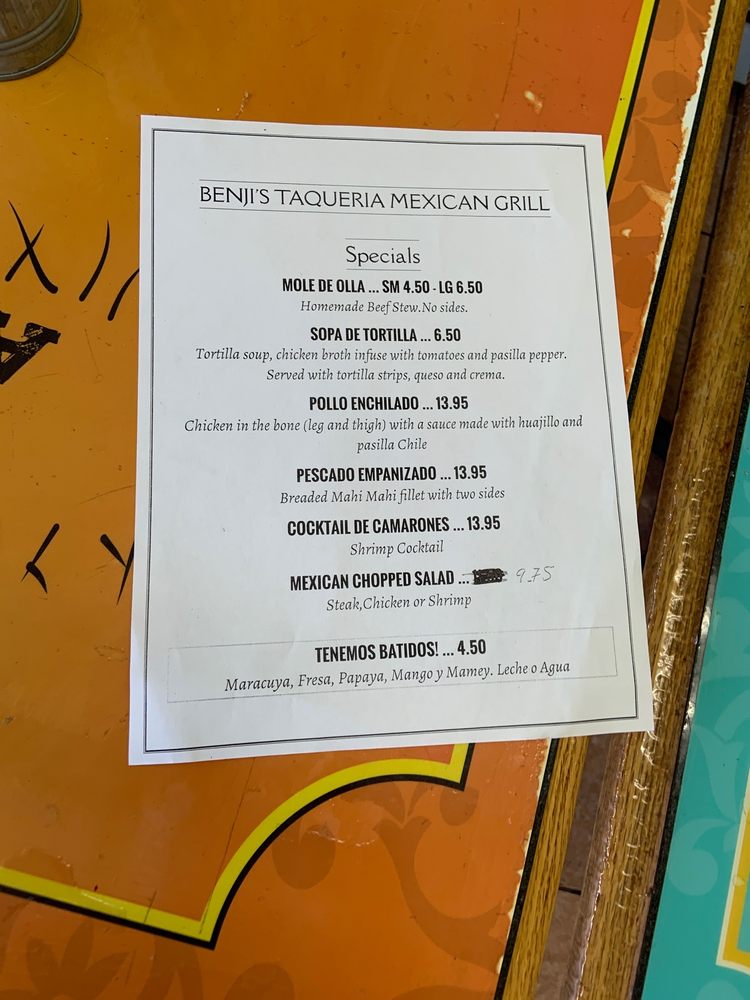 BENJI'S TAQUERIA MEXICAN GRILL
Specials
MOLE DE OLLA ... SM 4.50 - LG 6.50
Homemade Beef Stew.No sides.
SOPA DE TORTILLA ... 6.50
Tortilla soup, chicken broth infuse with tomatoes and pasilla pepper.
Served with tortilla strips, queso and crema.
POLLO ENCHILADO ... 13.95
Chicken in the bone (leg and thigh) with a sauce made with huajillo and
pasilla Chile
PESCADO EMPANIZADO ... 13.95
Breaded Mahi Mahi fillet with two sides
COCKTAIL DE CAMARONES ... 13.95
Shrimp Cocktail
MEXICAN CHOPPED SALAD ... 9.75
Steak,Chicken or Shrimp
TENEMOS BATIDOS! ... 4.50
Maracuya, Fresa, Papaya, Mango y Mamey. Leche o Agua